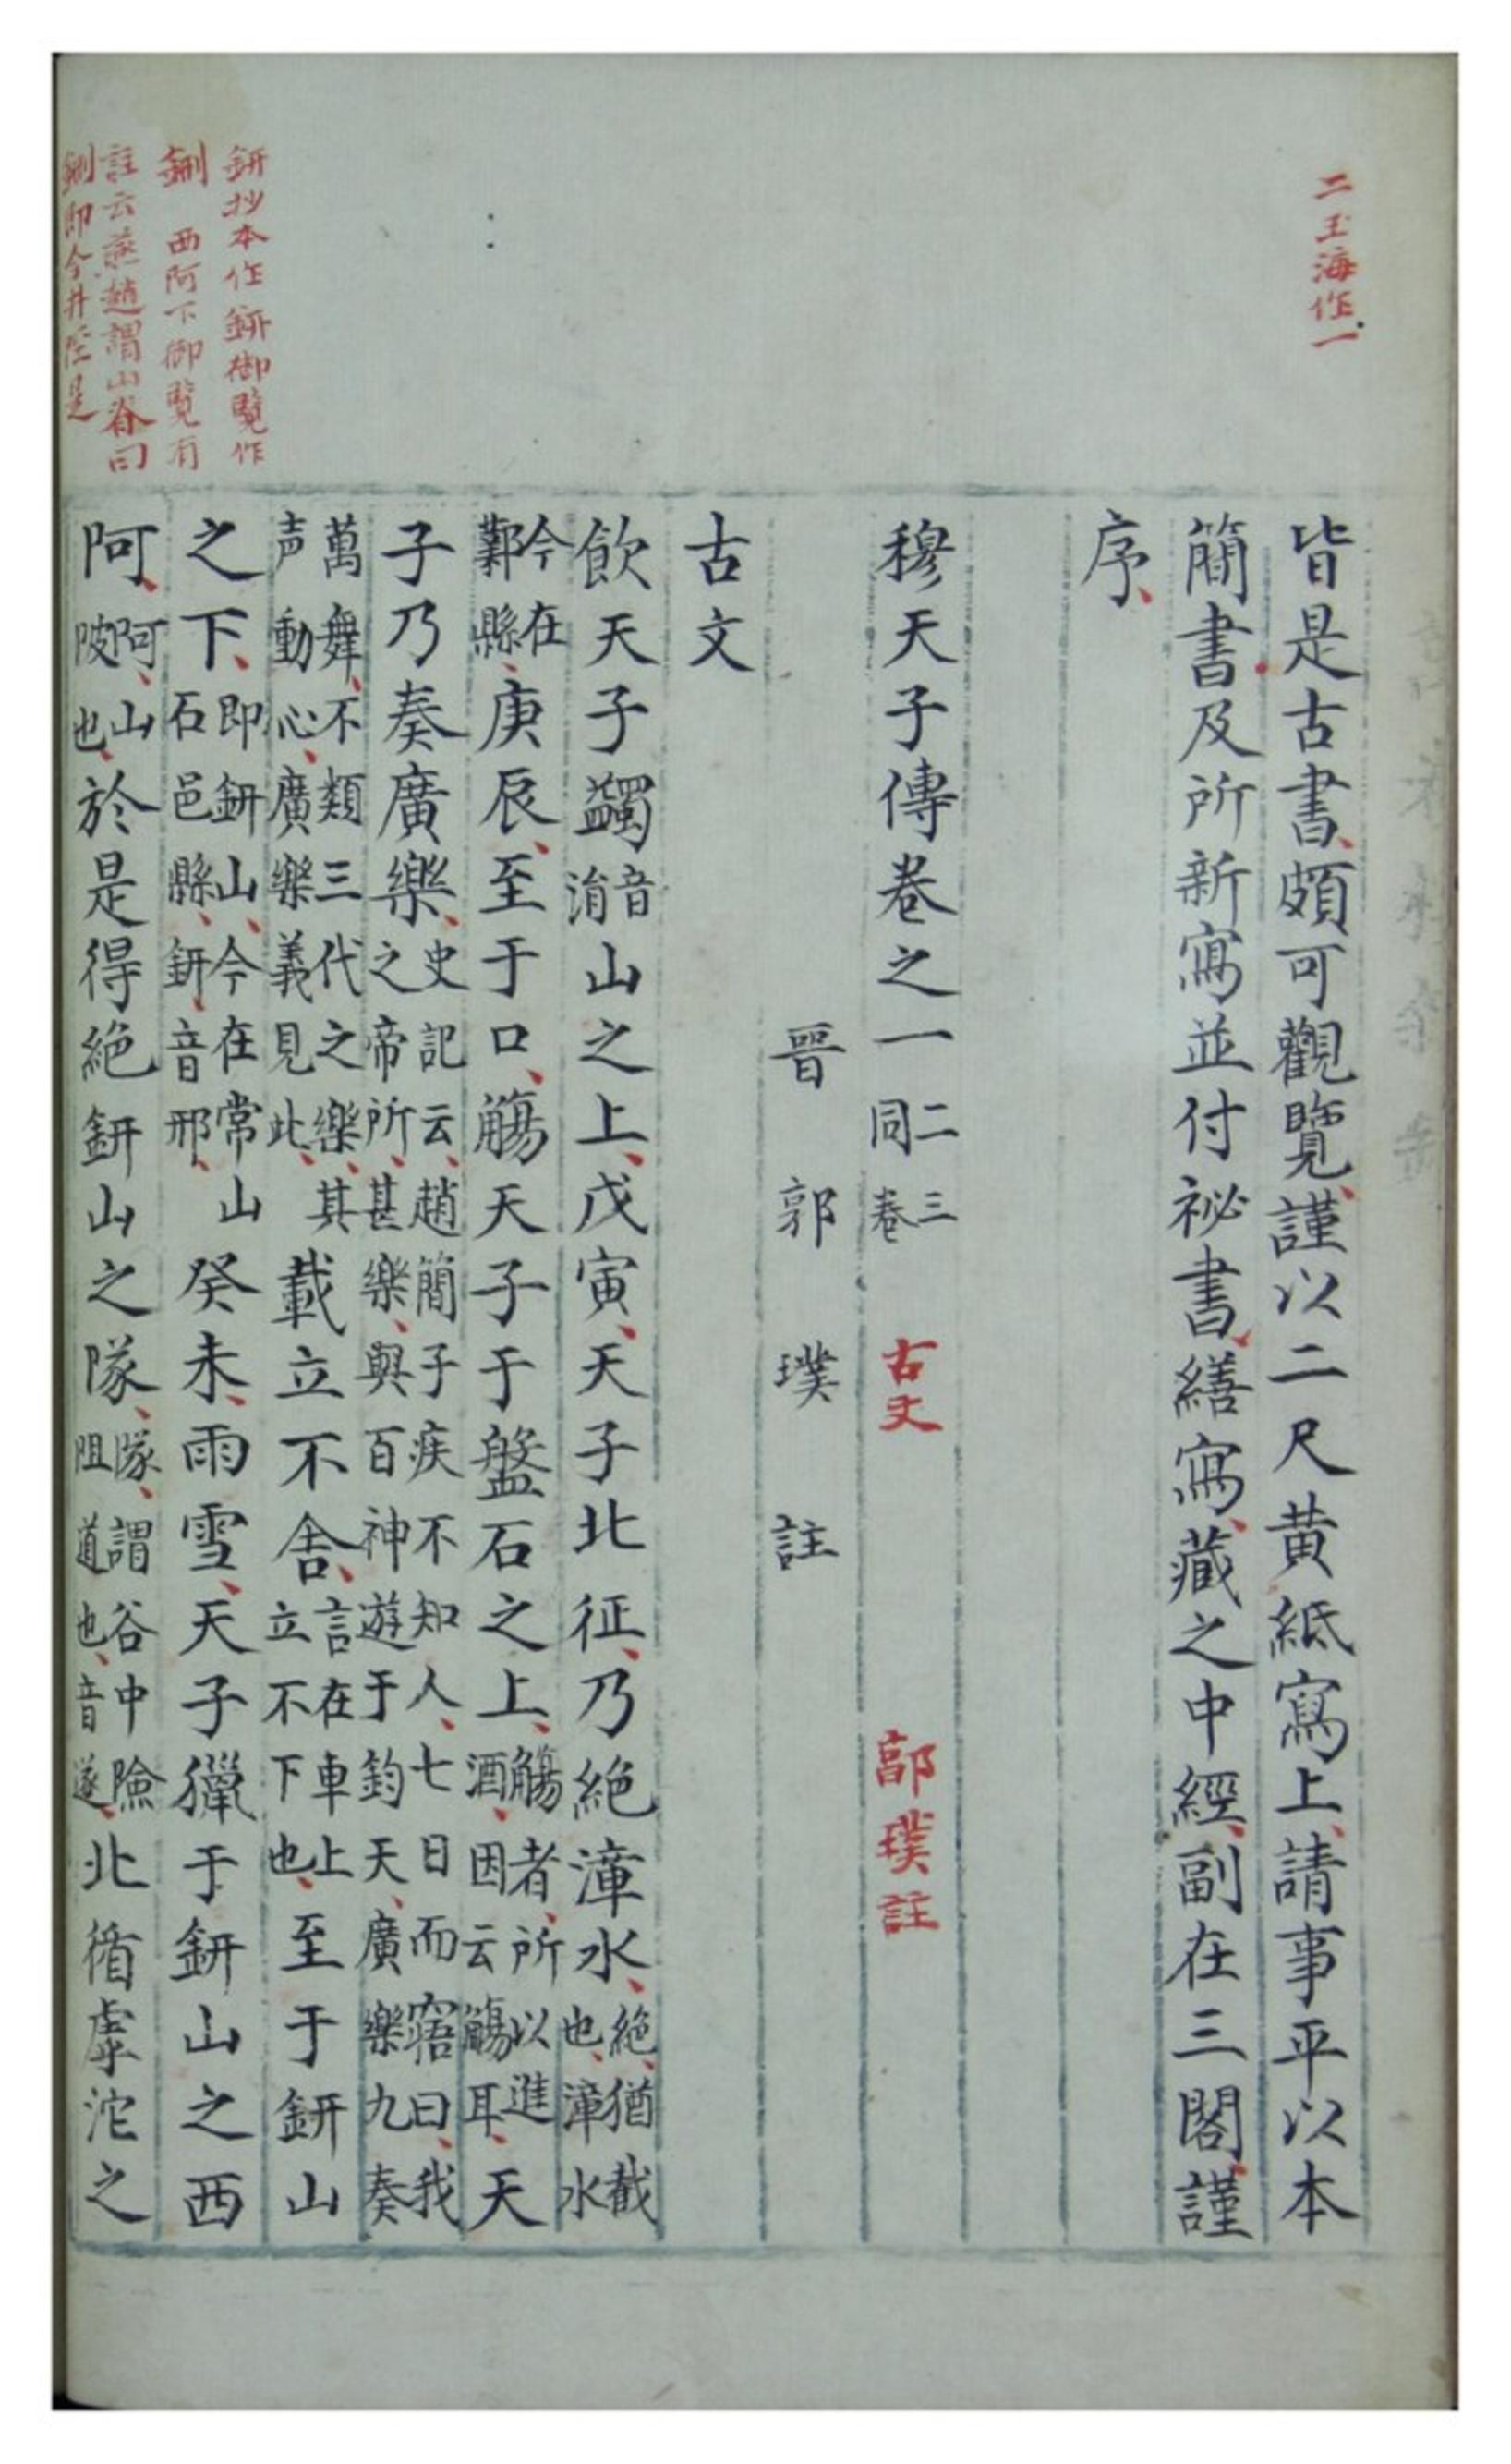 二玉海作一
皆是古書頗可觀覽謹以二尺黄紙寫上請事平以本
簡書及所新寫並付祕書繕寫藏之中經副在三閣謹
序
穆天子傳卷之一二三同卷 古文 郭璞註
晉 郭 璞 註
古文
飲天子蠲音涓山之上戊寅天子北征乃絕漳水絕猶截也漳水
今在鄴縣庚辰至于口觴天子于盤石之上觴者所以進酒因云觴耳天
子乃奏廣樂史記云趙簡子疾不知人七日而寤曰我之帝所甚樂與百神遊于鈞天廣樂九奏
萬舞不類三代之樂其声動心廣樂義見此載立不舍言在車上立不下也至于鈃山
之下即鈃山今在常山石邑縣鈃音邢癸未雨雪天子獵于鈃山之西
阿阿山陂也於是得絕鈃山之隊隊謂谷中險阻道也音遂北循虖沱之
鈃抄本作銒御覽作
鉶 西阿下御覽有
註云燕趙謂山脊曰
鉶即今井陘是